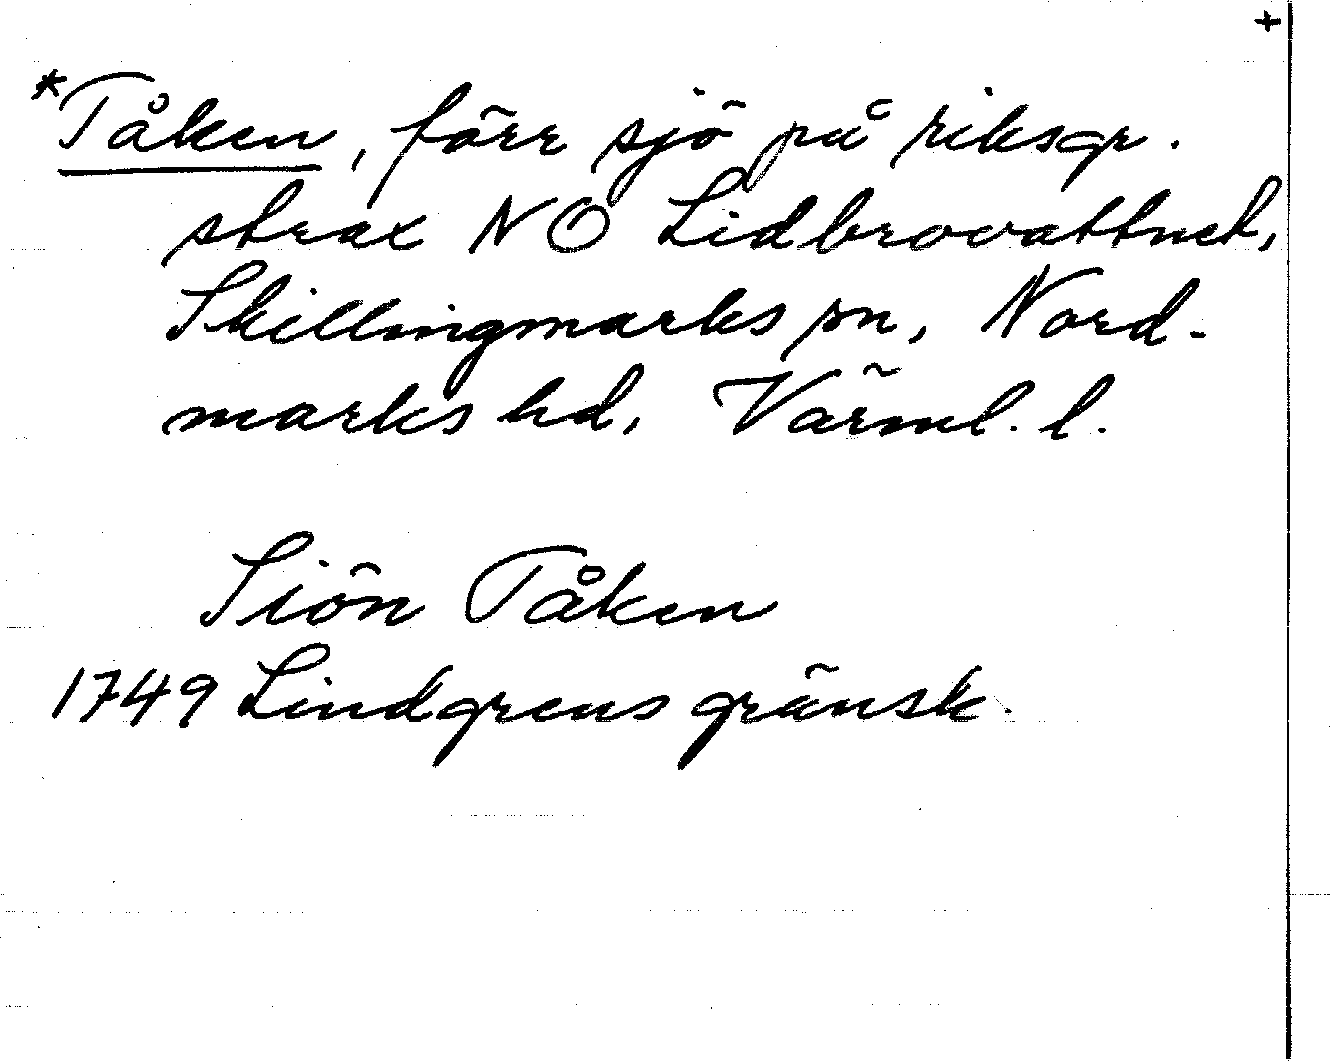 +
*Tåken, förr sjö på riksgr.
strax NO Lidbrovattnet,
Skillingmarks sn, Nord-
marks hd, Värml. l.
Siön Tåken
1749 Lindgrens gränsk.